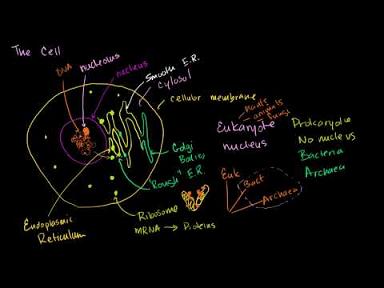 The Cell
DNA
nucleolus
nucleus
Smooth E.R.
Cytosol
cellular membrane
plants
animals
fungi
Eukaryote
nucleus
Prokaryote
No nucleus
Bacteria
Archaea
Golgi
Bodies
Rough E.R.
Euk
Bact
Archaea
Endoplasmic
Reticulum
Ribosome
mRNA → Proteins